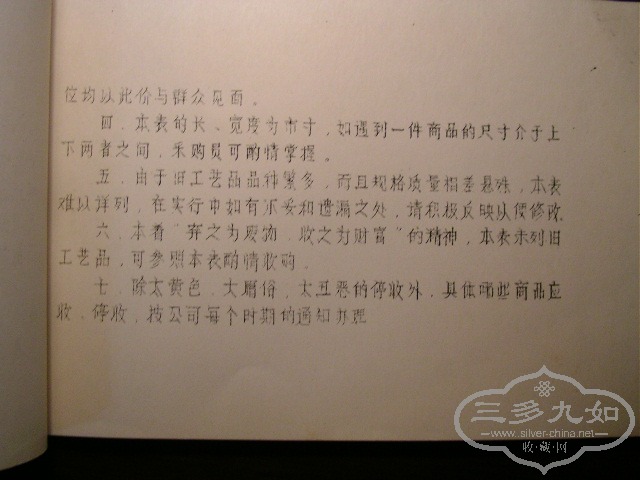 位均以此价与群众见面。
四．本表的长、宽度为市寸，如遇到一件商品的尺寸介于上
下两者之间，采购员可酌情掌握。
五．由于旧工艺品品种繁多，而且规格质量相差悬殊，本表
难以详列，在实行中如有不妥和遗漏之处，请积极反映以便修改。
六．本着“弃之为废物．收之为财富”的精神，本表未列旧
工艺品，可参照本表酌情收购。
七．除太黄色、太庸俗、太丑恶的停收外，具体哪些商品应
收、停收，按公司每个时期的通知办理
三多九如
www.silver-china.net
收·藏·网